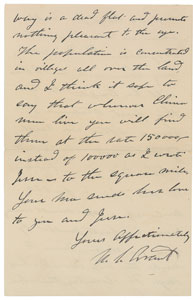 way is a dead flat and presents
nothing pleasant to the eye.
The population is concentrated
in villages all over the land
and I think it safe to
say that wherever China
men live you will find
them at the rate 150000
instead of 100000 as I wrote
Jesse to the square mile.
Your Ma sends her love
to you and Jesse.
Yours Affectionately
U. S. Grant